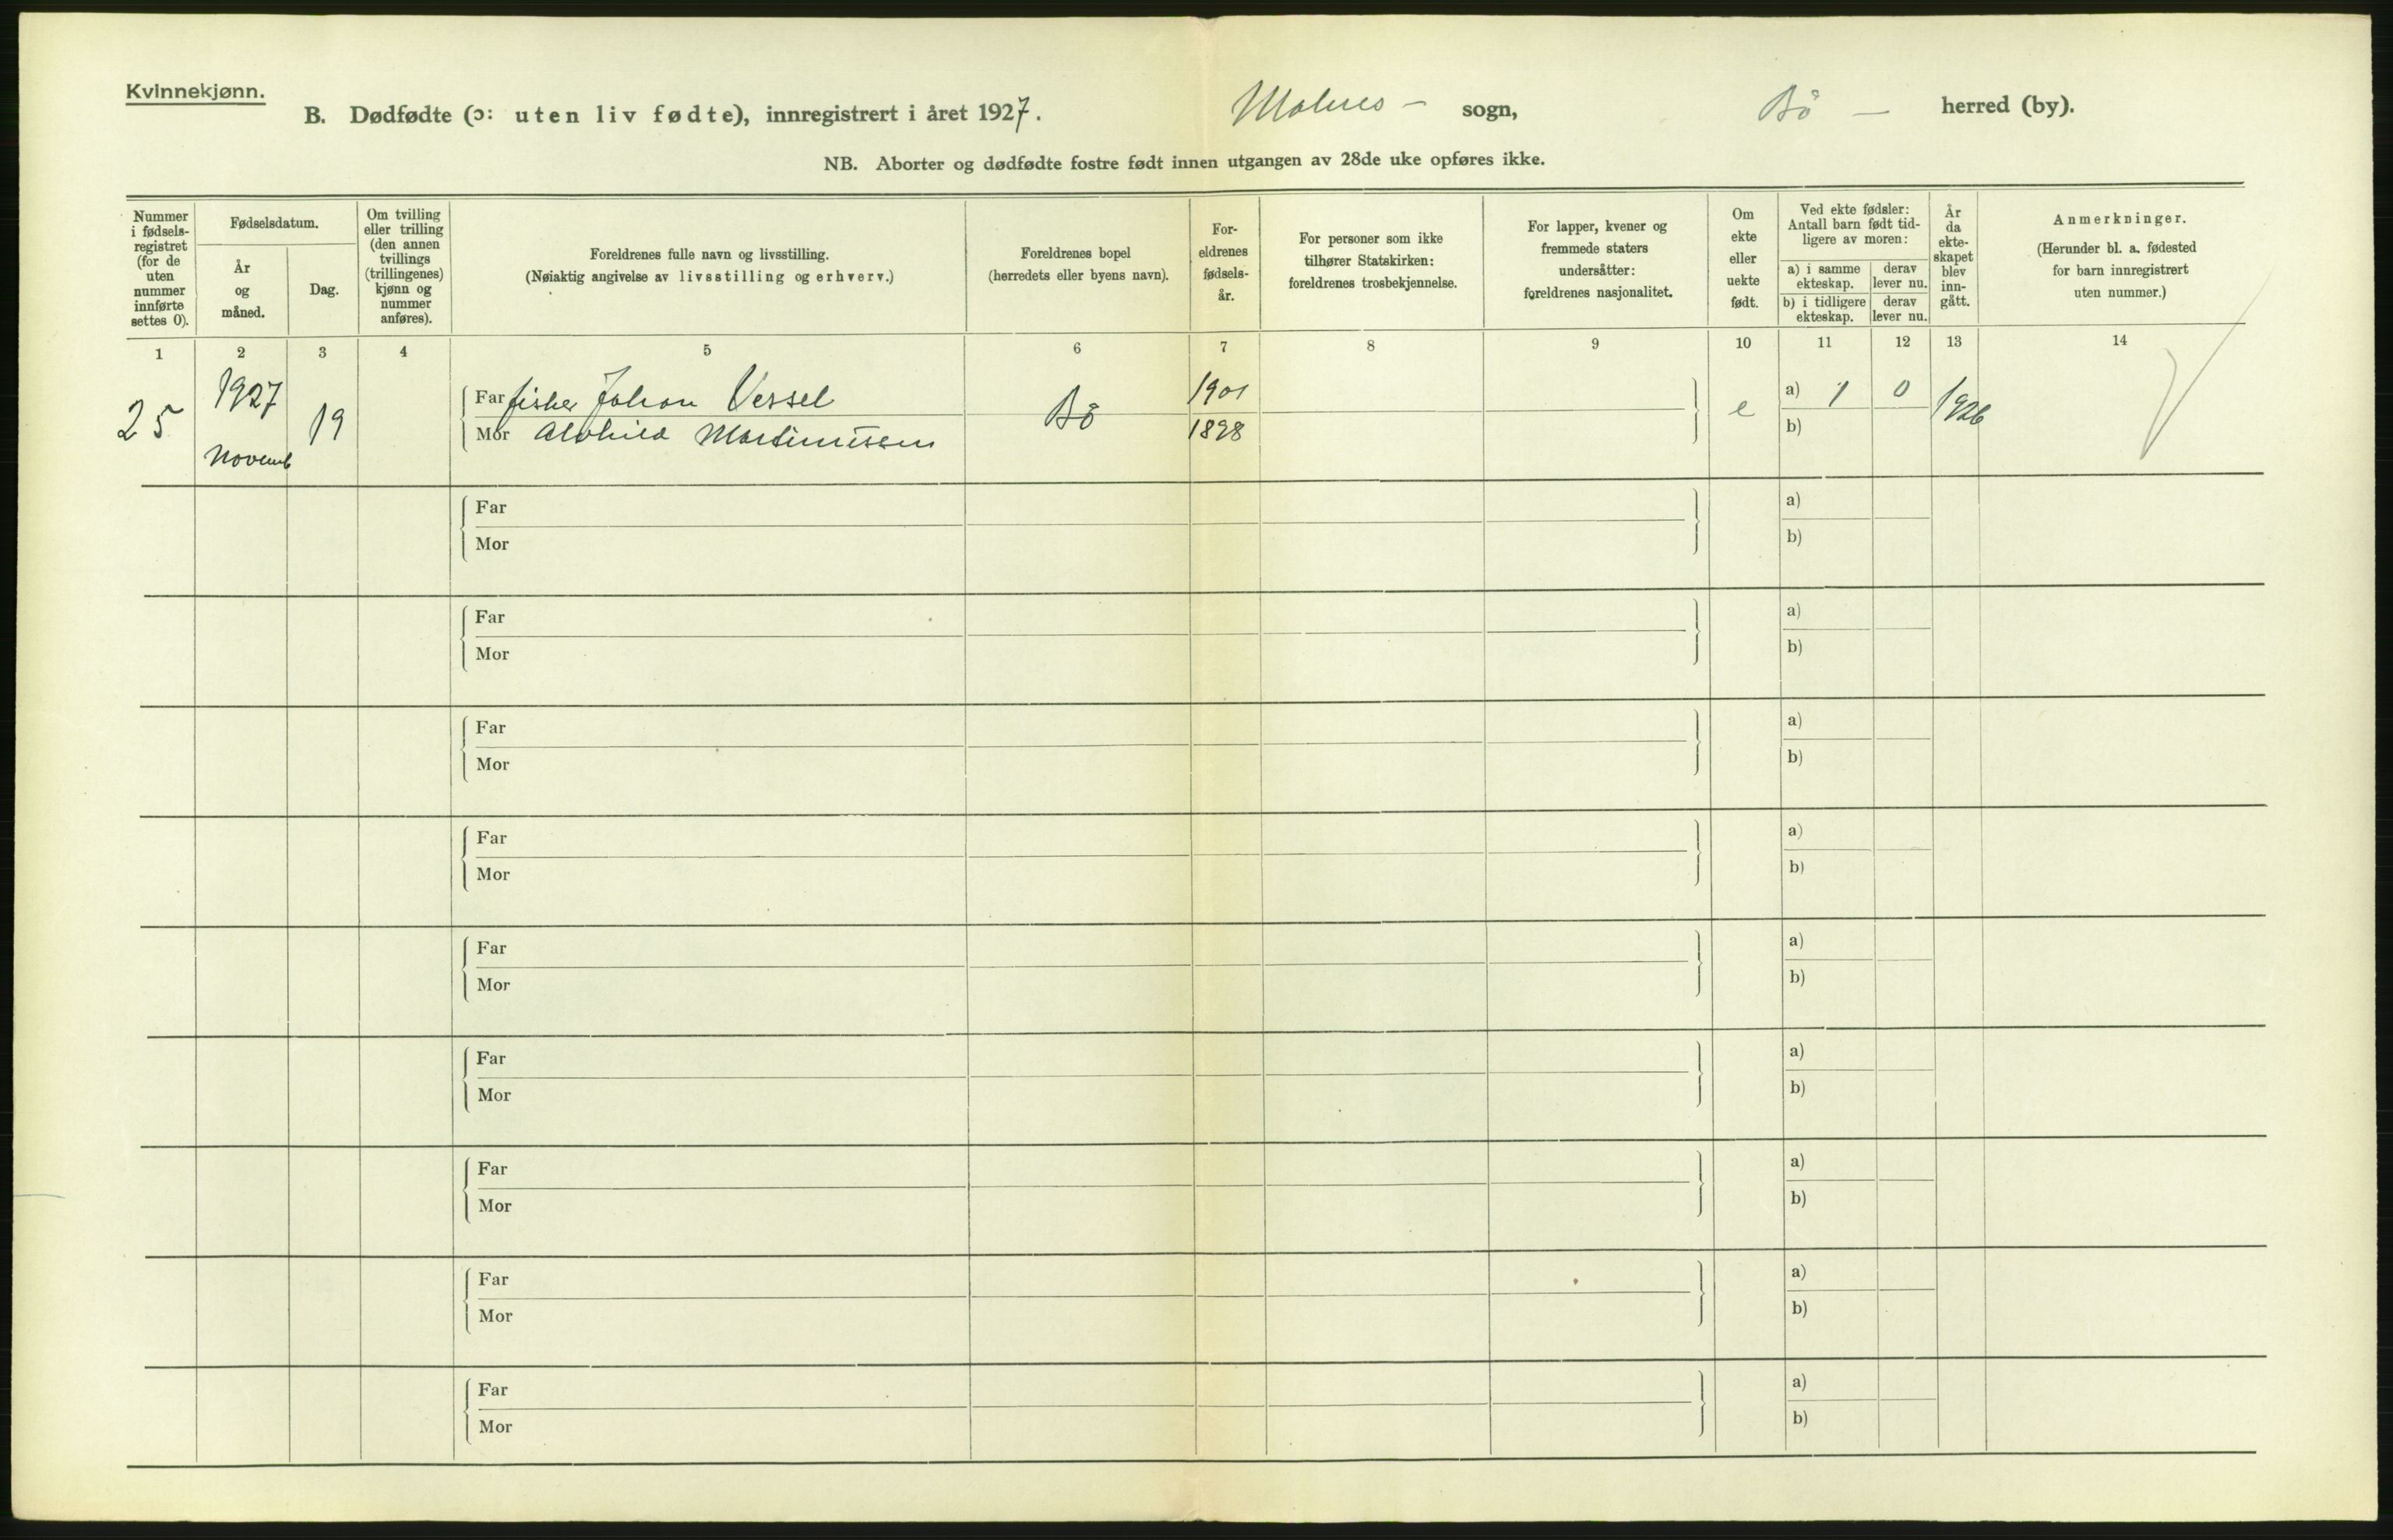 Kvinnekjønn.
B. Dødfødte (ɔ: uten liv fødte), innregistrert i året 1927. Malnes – sogn, Bö – herred (by).
NB. Aborter og dødfødte fostre født innen utgangen av 28de uke opføres ikke.
Nummer
i fødsels-
registret
(for de
uten
nummer
innførte
settes 0).
Fødselsdatum.
År
og
måned.
Dag.
Om tvilling
eller trilling
(den annen
tvillings
(trillingenes)
kjønn og
nummer
anføres).
Foreldrenes fulle navn og livsstilling.
(Nøiaktig angivelse av livsstilling og erhverv.)
Foreldrenes bopel
(herredets eller byens navn).
For-
eldrenes
fødsels-
år.
For personer som ikke
tilhører Statskirken:
foreldrenes trosbekjennelse.
For lapper, kvener og
fremmede staters
undersåtter:
foreldrenes nasjonalitet.
Om
ekte
eller
uekte
født.
Ved ekte fødsler:
Antall barn født tid-
ligere av moren:
a) i samme
ekteskap.
derav
lever nu.
b) i tidligere
ekteskap.
derav
lever nu.
År
da
ekte-
skapet
blev
inn-
gått.
Anmerkninger.
(Herunder bl. a. fødested
for barn innregistrert
uten nummer.)
1 2 3 4 5 6 7 8 9 10 11 12 13 14
25 1927 Novemb 19 Far fisker Johan Vessel Bö 1901 e a) 1 0 1926
Mor Alvhild Martinussen 1898 b)
Far a)
Mor b)
Far a)
Mor b)
Far a)
Mor b)
Far a)
Mor b)
Far a)
Mor b)
Far a)
Mor b)
Far a)
Mor b)
Far a)
Mor b)
Far a)
Mor b)